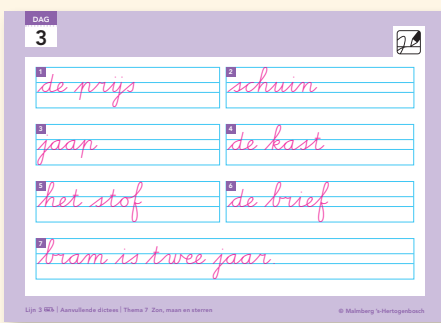 DAG
3
1
de prijs
2
schuin
3
jaap
4
de kast
5
het stof
6
de brief
7
bram is twee jaar.
Lijn 3 | Aanvullende dictees | Thema 7 Zon, maan en sterren
© Malmberg 's-Hertogenbosch